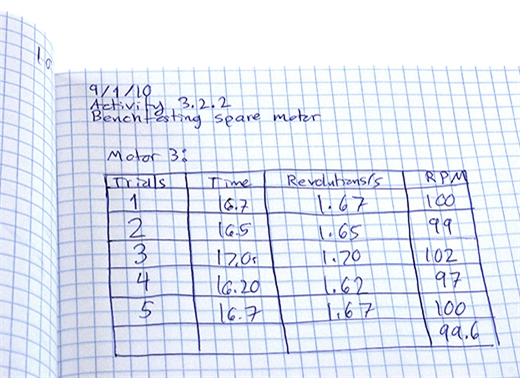 9/1/10
Activity 3.2.2
Benchtesting spare motor
Motor 3:
Trials Time Revolutions/s RPM
1 16.7 1.67 100
2 16.5 1.65 99
3 17.0s 1.70 102
4 16.20 1.62 97
5 16.7 1.67 100
99.6